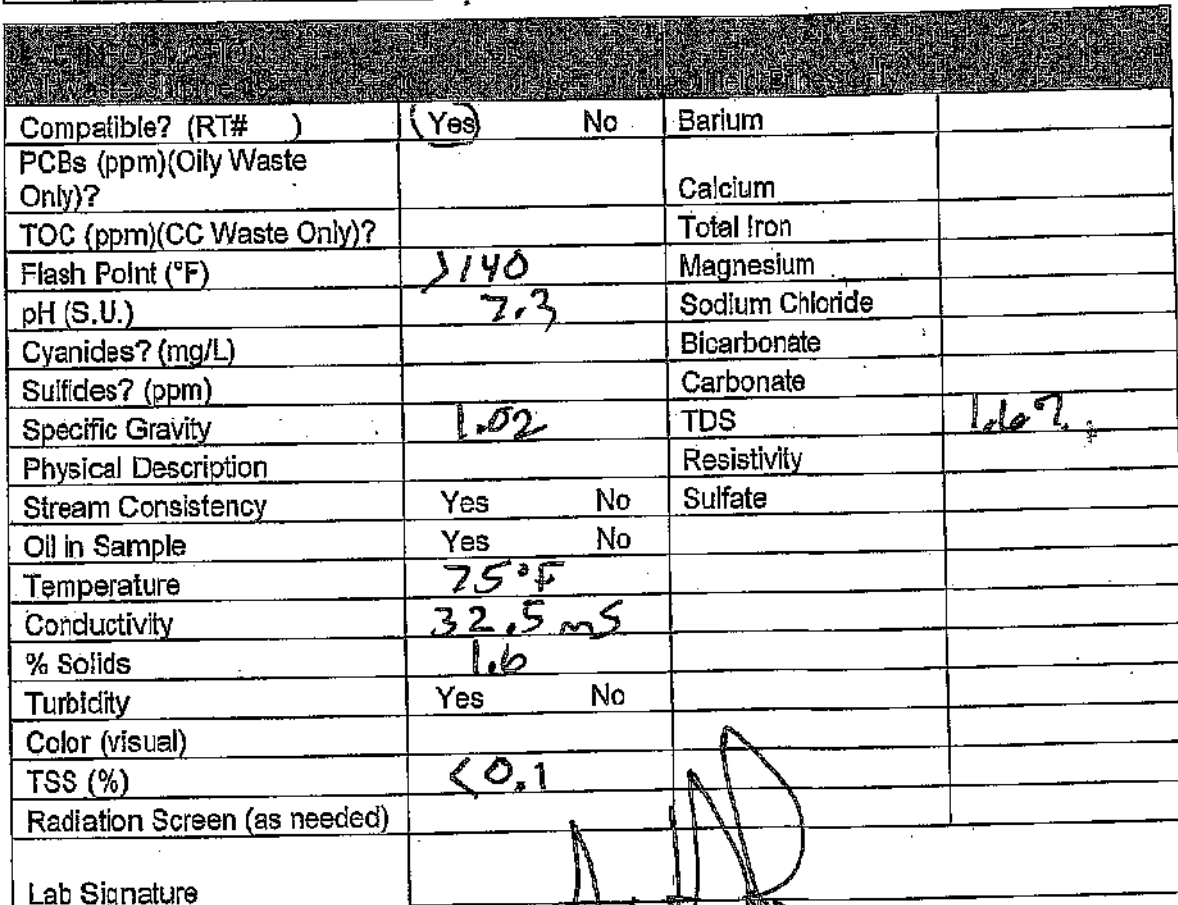 LAB INFORMATION
Compatible? (RT# ) Yes No Barium
PCBs (ppm)(Oily Waste
Only)? Calcium
TOC (ppm)(CC Waste Only)? Total Iron
Flash Point (°F) >140 Magnesium
pH (S.U.) 7.3 Sodium Chloride
Cyanides? (mg/L) Bicarbonate
Sulfides? (ppm) Carbonate
Specific Gravity 1.02 TDS 1.6%
Physical Description Resistivity
Stream Consistency Yes No Sulfate
Oil in Sample Yes No
Temperature 75°F
Conductivity 32.5 mS
% Solids 1.6
Turbidity Yes No
Color (visual)
TSS (%) <0.1
Radiation Screen (as needed)
Lab Signature